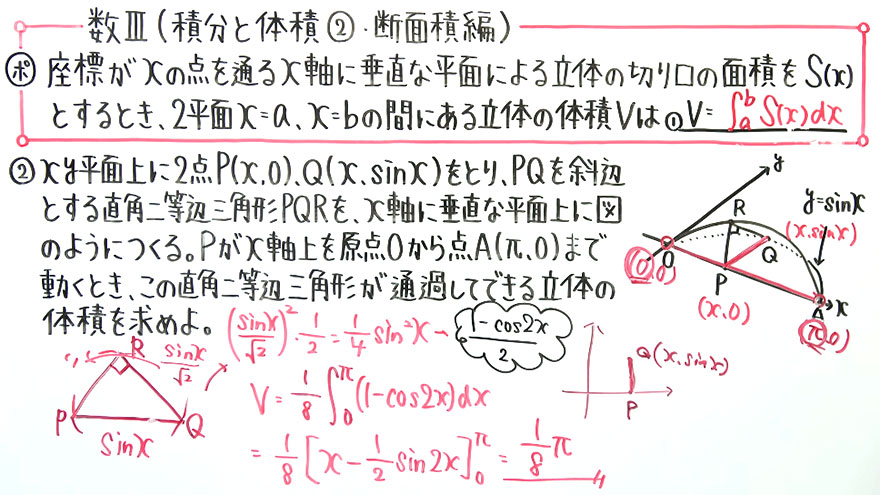 数Ⅲ(積分と体積②・断面積編)
ポ 座標がxの点を通るx軸に垂直な平面による立体の切り口の面積をS(x)
とするとき、2平面x=a、x=bの間にある立体の体積Vは①V=∫_a^b S(x)dx
②xy平面上に2点P(x,0)、Q(x,sinx)をとり、PQを斜辺
とする直角二等辺三角形PQRを、x軸に垂直な平面上に図
のようにつくる。Pがx軸上を原点Oから点A(π,0)まで
動くとき、この直角二等辺三角形が通過してできる立体の
体積を求めよ。
(sinx/√2)²・1/2=1/4 sin²x
1-cos2x/2
V=1/8∫_0^π(1-cos2x)dx
=1/8[x-1/2 sin2x]_0^π=1/8π
R
sinx/√2
P
Q
sinx
y
y=sinx
R
(x,sinx)
O
Q
(0,0)
P
x
(x,0)
A
(π,0)
Q(x,sinx)
P